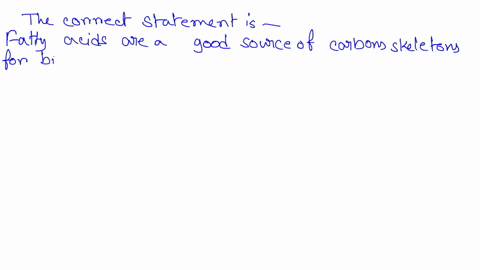 The connect statement is —
Fatty acids are a good source of carbons skeletons
for bi